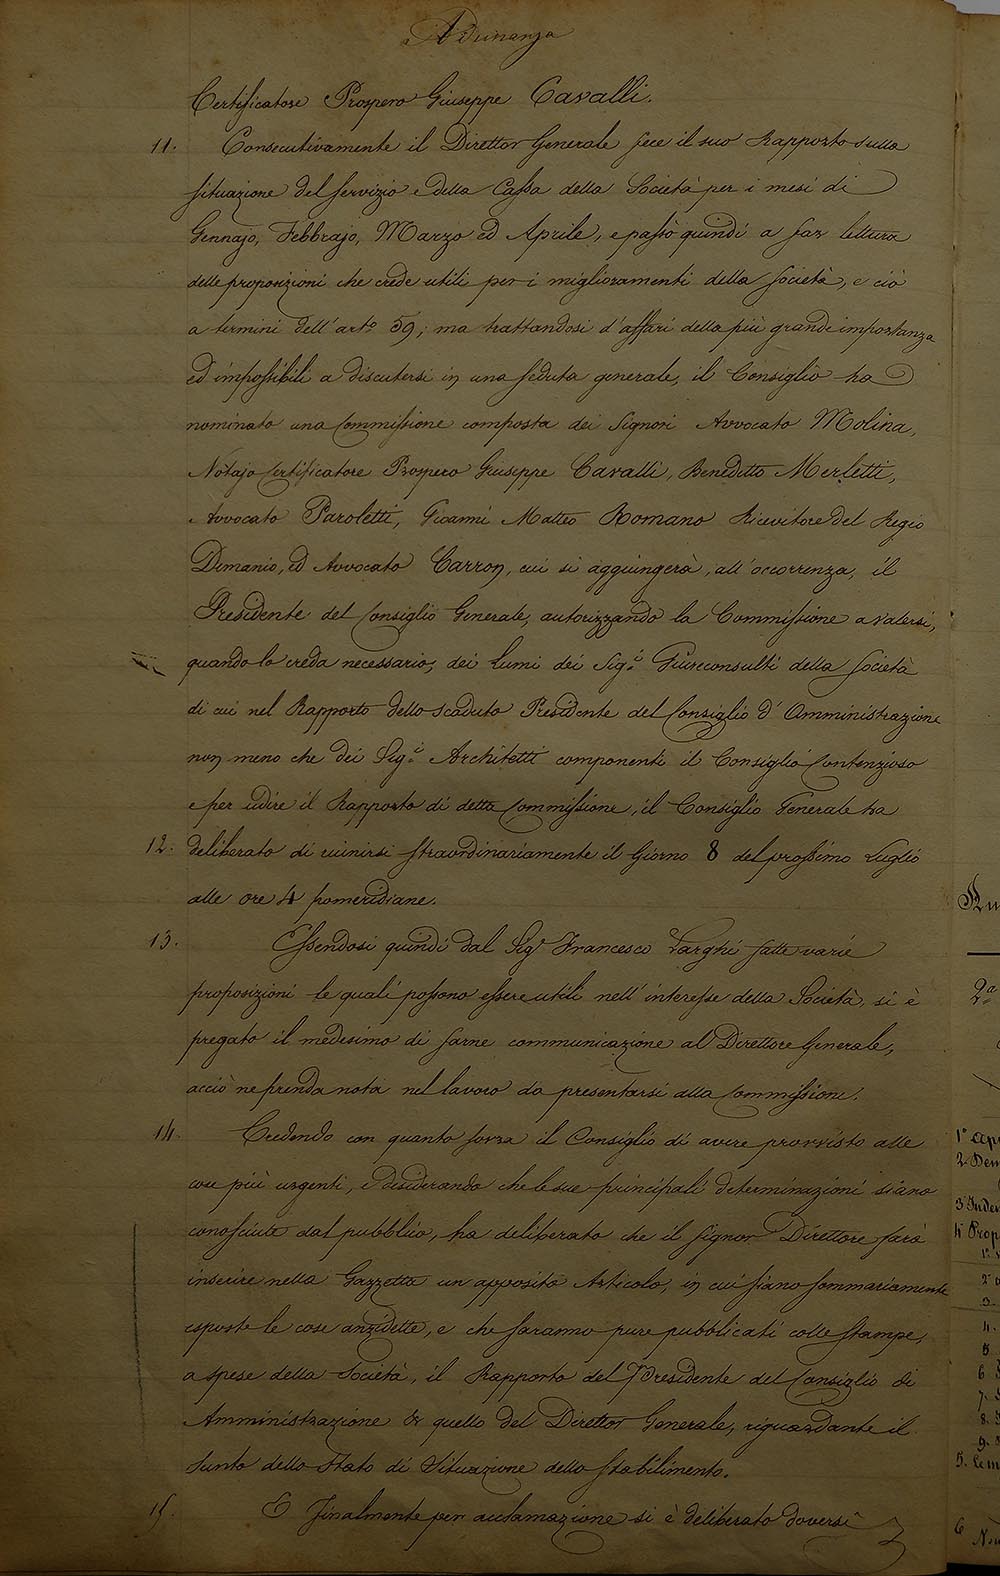 Adunanza
Certificatore Prospero Giuseppe Cavalli.
11. Consecutivamente il Direttor Generale fece il suo Rapporto sulla
situazione del servizio e della Cassa della Società per i mesi di
Gennajo, Febbrajo, Marzo ed Aprile, e passò quindi a far lettura
delle proposizioni che crede utili per i miglioramenti della società, e ciò
a termini dell'arto 59; ma trattandosi d'affari della più grande importanza
ed impossibili a discutersi in una seduta generale, il Consiglio ha
nominato una Commissione composta dei Signori Avvocato Molina,
Notajo Certificatore Prospero Giuseppe Cavalli, Benedetto Merletti,
Avvocato Paroletti, Gioanni Matteo Romano Ricevitore del Regio
Demanio, ed Avvocato Carron, cui si aggiungerà, all'occorrenza, il
Presidente del Consiglio Generale, autorizzando la Commissione a valersi,
quando lo creda necessario, dei lumi dei Sigi Giureconsulti della società
di cui nel Rapporto dello scaduto Presidente del Consiglio d'Amministrazione
non meno che dei Sigi Architetti componenti il Consiglio Contenzioso
e per udire il Rapporto di detta Commissione, il Consiglio Generale ha
12. deliberato di riunirsi straordinariamente il Giorno 8 del prossimo Luglio
alle ore 4 pomeridiane.
13. Essendosi quindi dal Sigr Francesco Larghi fatte varie
proposizioni le quali possono essere utili nell'interesse della Società, si è
pregato il medesimo di farne communicazione al Direttore Generale,
acciò ne prenda nota nel lavoro da presentarsi alla Commissione.
14. Credendo con quanto sovra il Consiglio di avere provvisto alle
cose più urgenti, e desiderando che le sue principali determinazioni siano
conosciute dal pubblico, ha deliberato che il signor Direttore farà
inserire nella Gazzetta un apposito Articolo, in cui siano sommariamente
esposte le cose anzidette, e che saranno pure pubblicati colle stampe,
a spese della Società, il Rapporto del Presidente del Consiglio di
Amministrazione & quello del Direttor Generale, riguardante il
Sunto dello Stato di Situazione dello stabilimento.
15. E finalmente per acclamazione si è deliberato doversi
2a
1°
2.
3
4 Prop
3.
4.
5
6
7.
8.
9.
5.
6